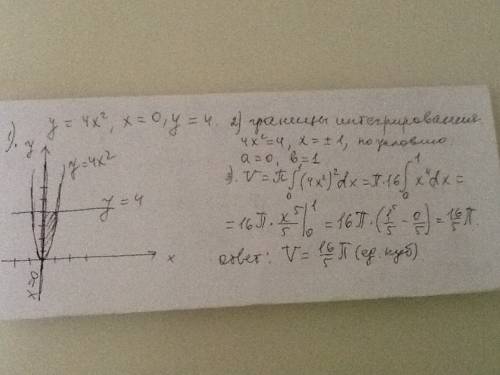 1). y = 4x², x = 0, y = 4.
y
y = 4x²
y = 4
x
x=0
2) границы интегрирования
4x² = 4, x = ±1, по условию
a = 0, b = 1
3). V = π∫₀¹(4x²)²dx = π·16∫₀¹x⁴dx =
= 16π · x⁵/5 |₀¹ = 16π · (1⁵/5 - 0/5) = 16/5 π.
ответ: V = 16/5 π (ед. куб)